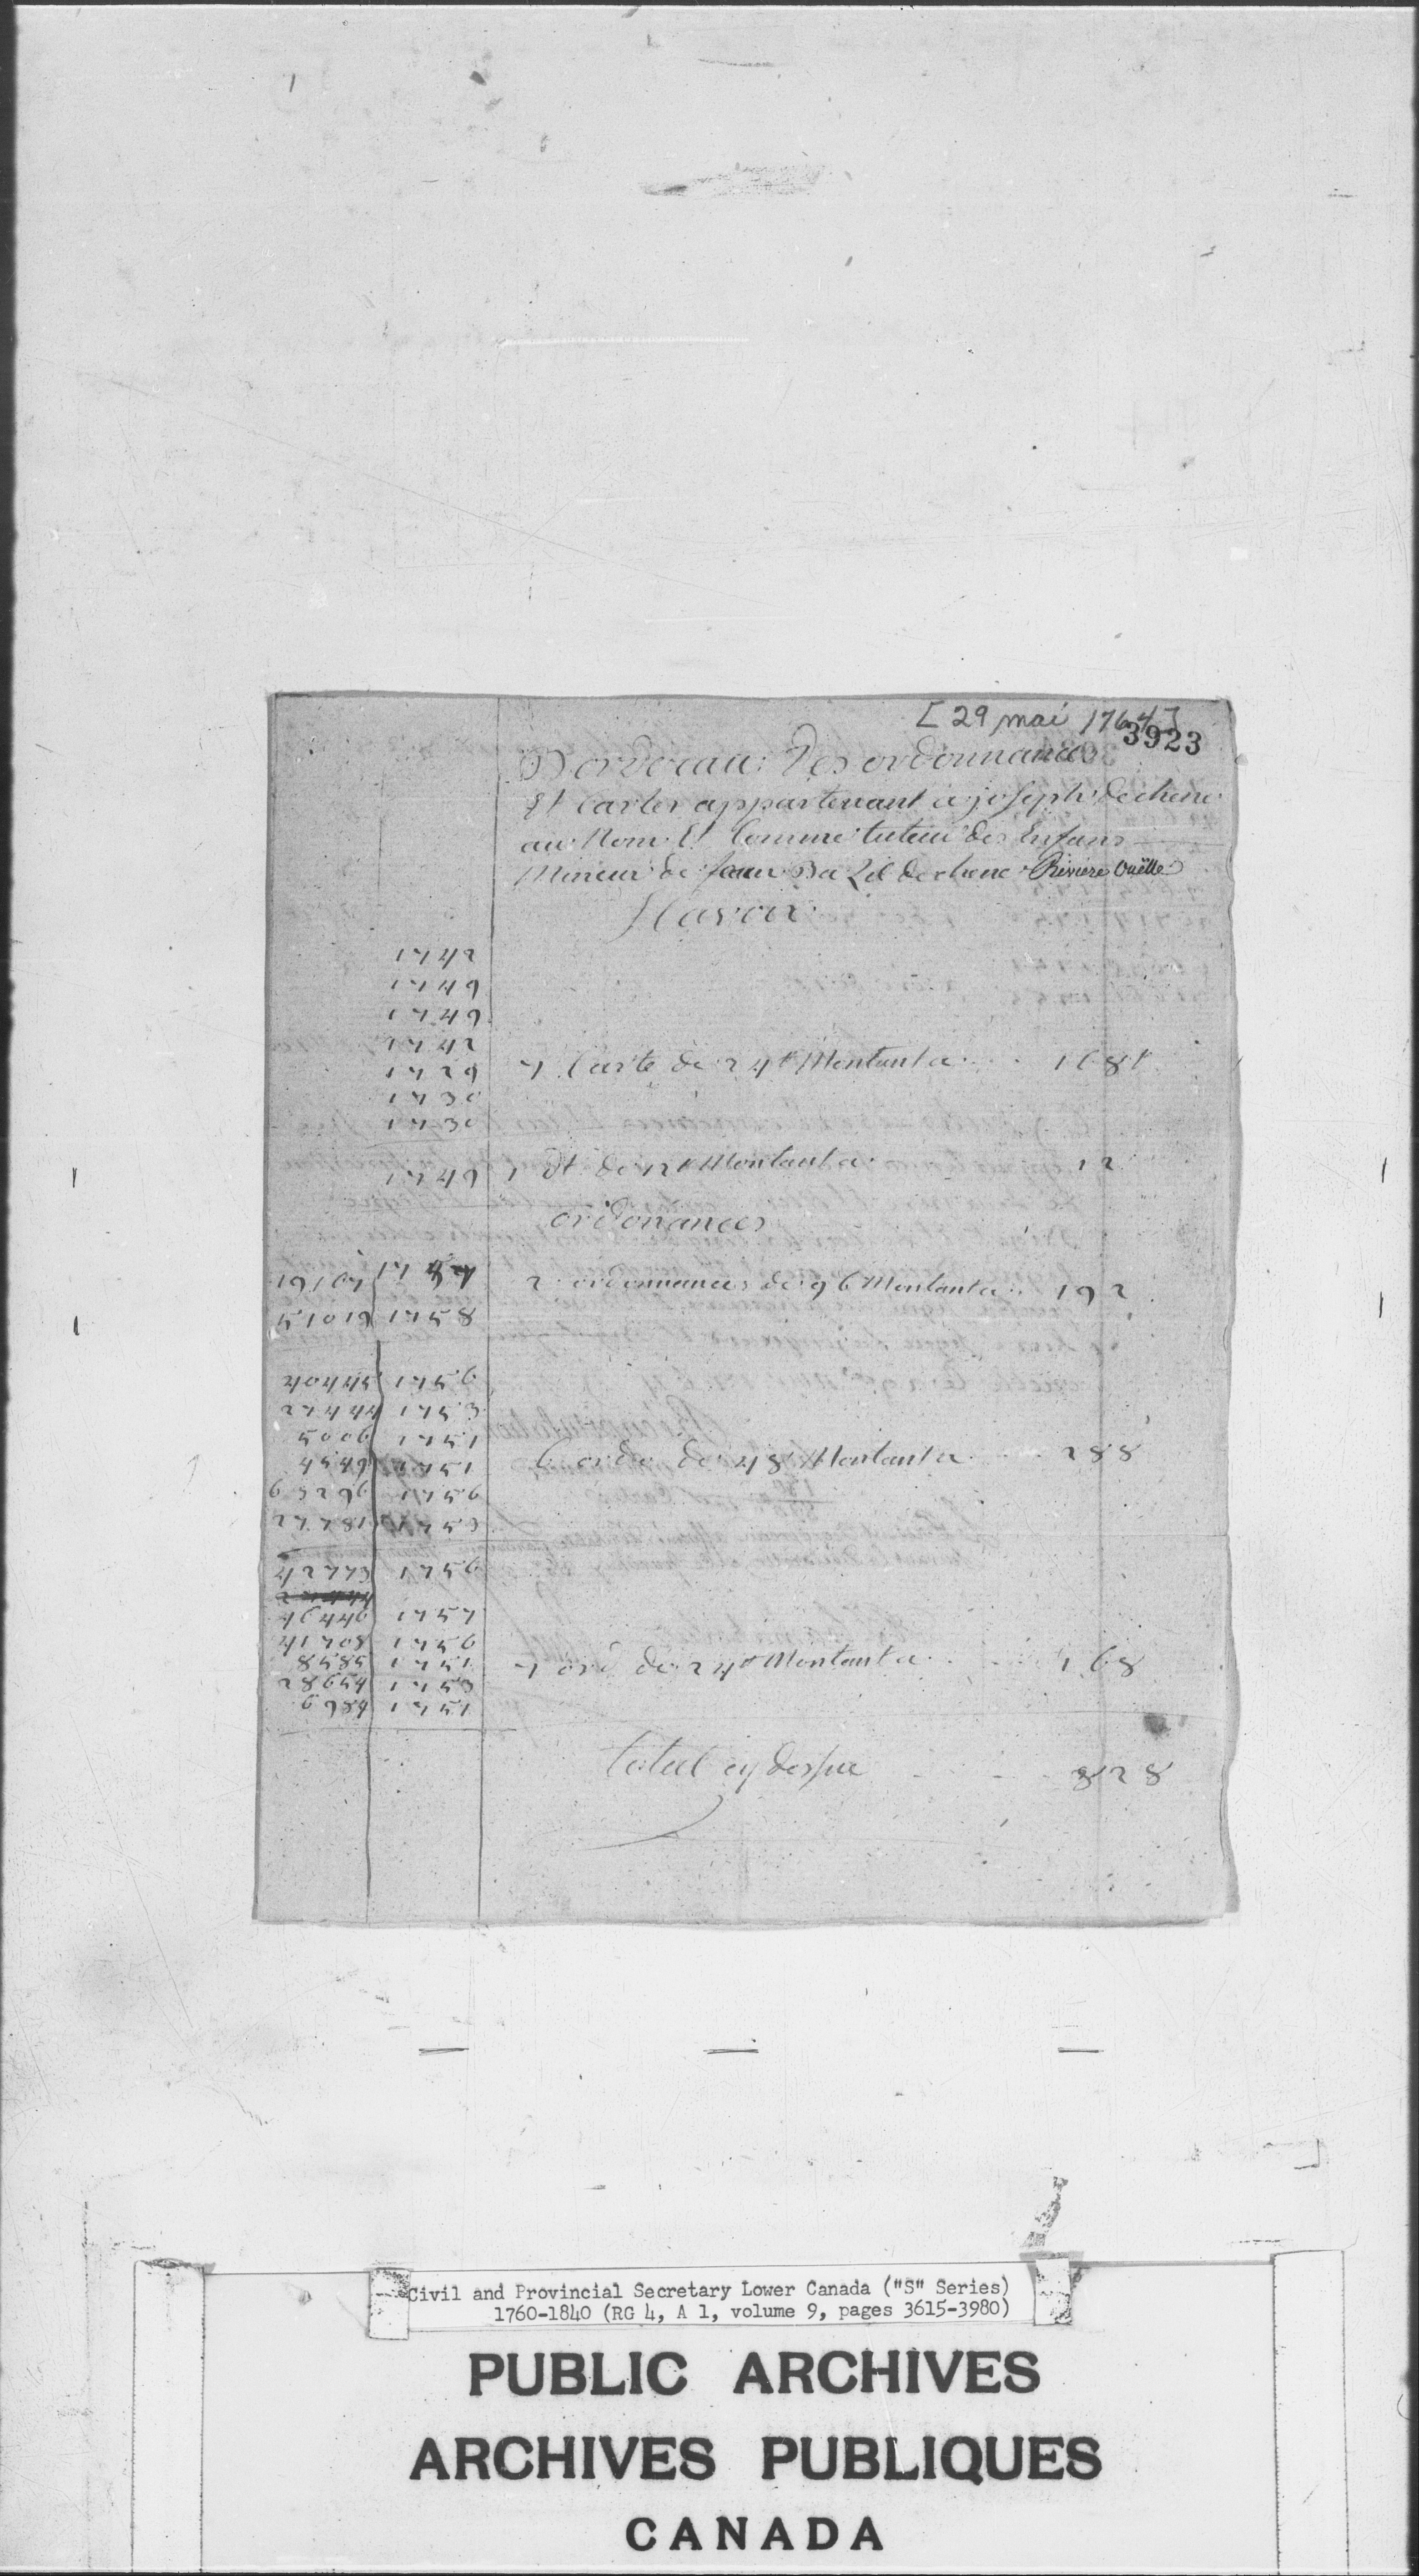 [29 mai 1764]
3923
Bordereau des ordonnances
Et Cartes appartenant a joseph dechene
au Nom Et Comme tuteur des Enfans
Mineur de jean Ba Lil dechene Riviere Ouëlle
Savoir
1742
1749
1749
1742
1729 7 Carte de 24# Montant a 168#
1730
1730
1749 1 dt de 12# Montant a 12
ordonances
19167 1757 2 ordonnances de 96 Montant a 192
51019 1758
40445 1756
27444 1753
5006 1751
4549 1751 6 ordo de 48 Montant a 288
65296 1756
27781 1753
42773 1756
27444
46446 1757
41708 1756
8585 1751 7 ord de 24# Montant a 168
28654 1753
6984 1751
total cy dessu 828
Civil and Provincial Secretary Lower Canada ("S" Series)
1760-1840 (RG 4, A 1, volume 9, pages 3615-3980)
PUBLIC ARCHIVES
ARCHIVES PUBLIQUES
CANADA